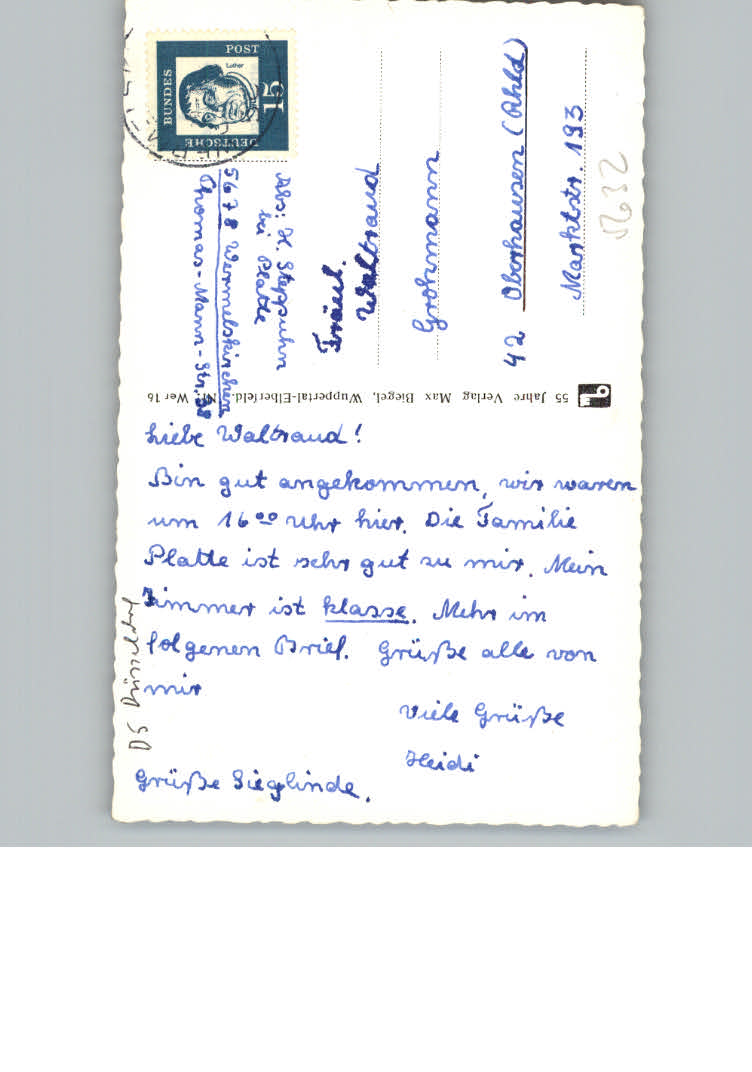 DEUTSCHE
BUNDES
POST
15
Luther
Abs: H. Steppuhn
bei Platte
5678 Wermelskirchen
Thomas-Mann-Str. 38
Fräul.
Waltraud
Grohmann
42 Oberhausen (Rhld)
Marktstr. 193
5632
55 Jahre Verlag Max Biegel, Wuppertal-Elberfeld. Nr. Wer 16
Liebe Waltraud!
Bin gut angekommen, wir waren
um 16⁰⁰ Uhr hier. Die Familie
Platte ist sehr gut zu mir. Mein
Zimmer ist klasse. Mehr im
folgenen Brief. Grüße alle von
mir
Viele Grüße
Heidi
Grüße Sieglinde.
DS Düsseldorf